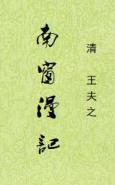 清 王夫之
南窗漫記